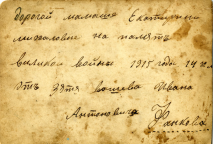 дорогой мамаше Екатерине
михаловне на память
великая война 1915 года 14
отъ зятя вашева Ивана
Антоновича
Фанкова